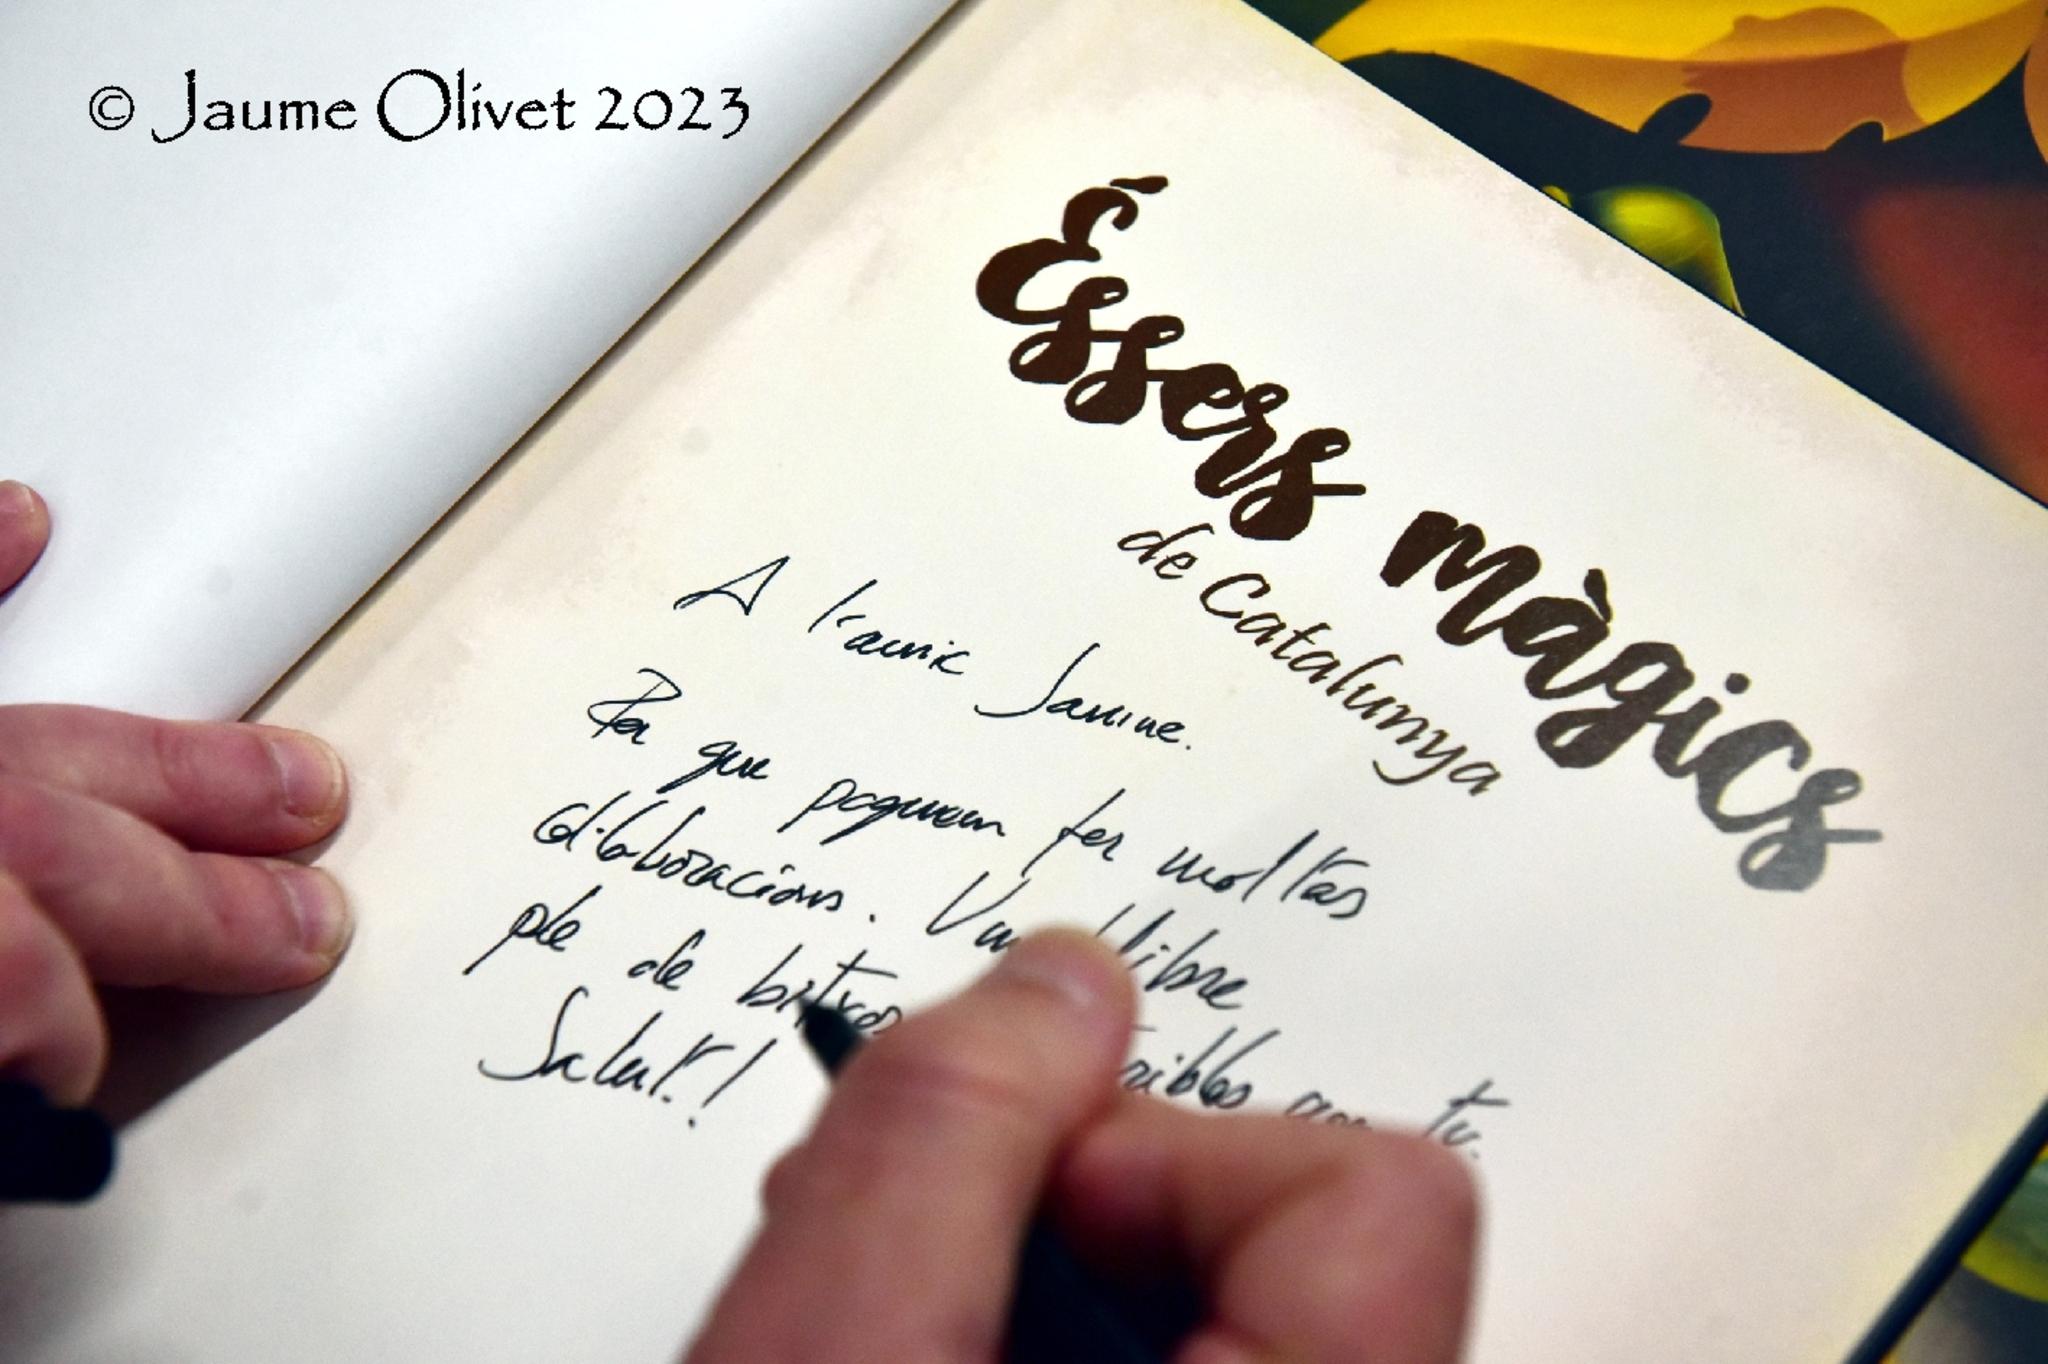 © Jaume Olivet 2023
Éssers màgics
de Catalunya
A l'amic Jaume.
Per que poguem fer moltes
col·laboracions. Un llibre
ple de bitxos tu.
Salut!